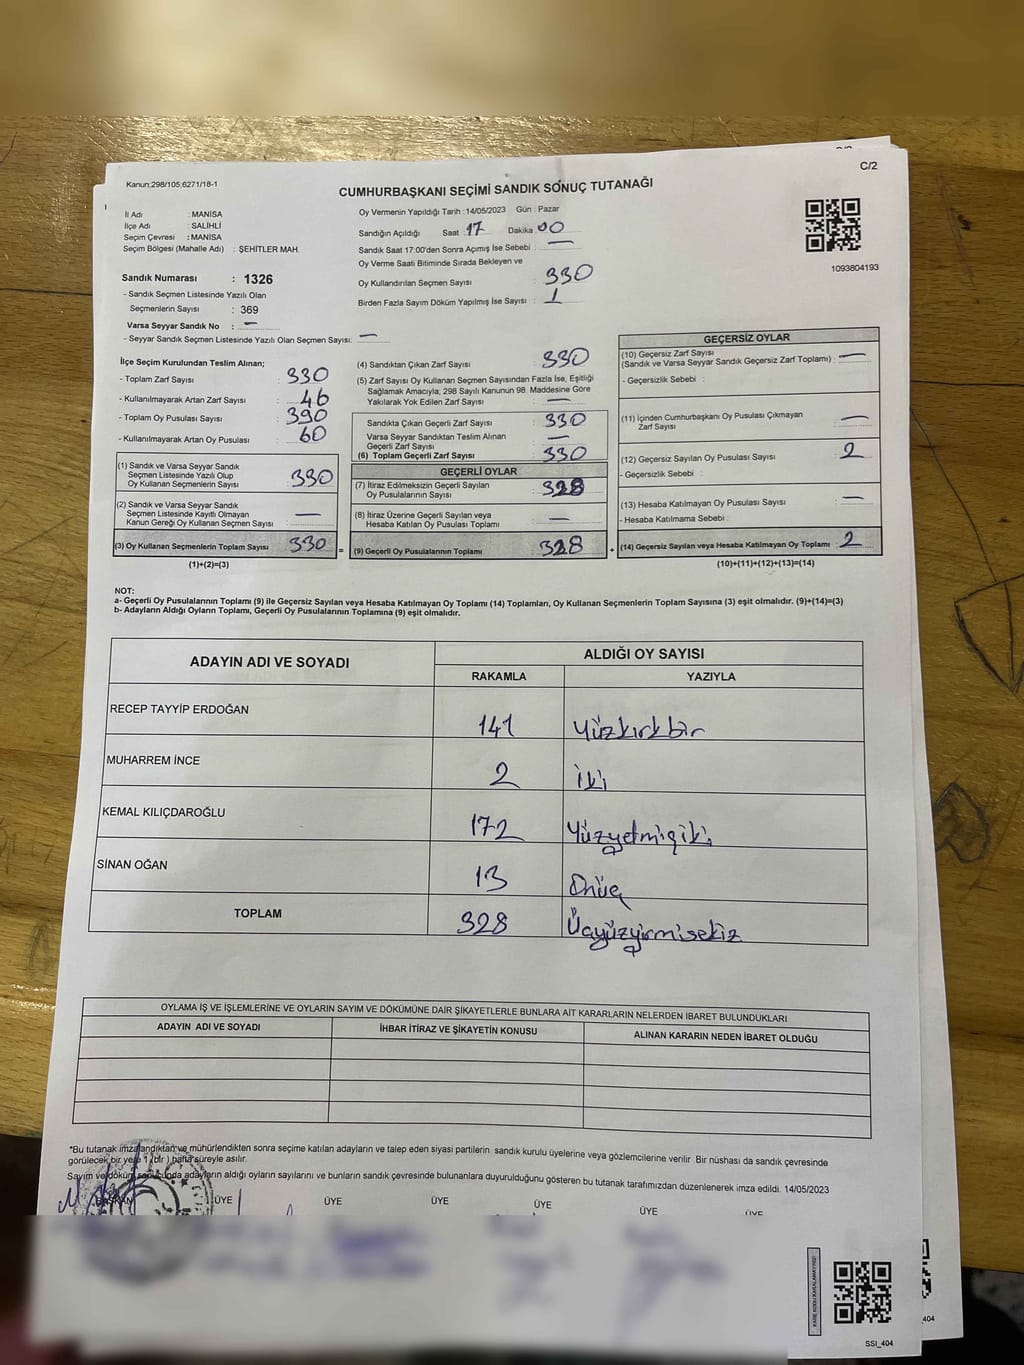 C/2
Kanun;298/105,6271/18-1
CUMHURBAŞKANI SEÇİMİ SANDIK SONUÇ TUTANAĞI
İl Adı : MANİSA
İlçe Adı : SALİHLİ
Seçim Çevresi : MANİSA
Seçim Bölgesi (Mahalle Adı) : ŞEHİTLER MAH.
Oy Vermenin Yapıldığı Tarih : 14/05/2023 Gün : Pazar
Sandığın Açıldığı Saat : 17 Dakika : 00
Sandık Saat 17:00'den Sonra Açımış İse Sebebi : —
Oy Verme Saati Bitiminde Sırada Bekleyen ve
Oy Kullandırılan Seçmen Sayısı : 330
Birden Fazla Sayım Döküm Yapılmış İse Sayısı : 1
1093804193
Sandık Numarası : 1326
- Sandık Seçmen Listesinde Yazılı Olan
Seçmenlerin Sayısı : 369
Varsa Seyyar Sandık No : —
- Seyyar Sandık Seçmen Listesinde Yazılı Olan Seçmen Sayısı: —
İlçe Seçim Kurulundan Teslim Alınan;
- Toplam Zarf Sayısı : 330
- Kullanılmayarak Artan Zarf Sayısı : 46
- Toplam Oy Pusulası Sayısı : 390
- Kullanılmayarak Artan Oy Pusulası : 60
(1) Sandık ve Varsa Seyyar Sandık
Seçmen Listesinde Yazılı Olup
Oy Kullanan Seçmenlerin Sayısı : 330
(2) Sandık ve Varsa Seyyar Sandık
Seçmen Listesinde Kayıtlı Olmayan
Kanun Gereği Oy Kullanan Seçmen Sayısı : —
(3) Oy Kullanan Seçmenlerin Toplam Sayısı : 330
(1)+(2)=(3)
(4) Sandıktan Çıkan Zarf Sayısı : 330
(5) Zarf Sayısı Oy Kullanan Seçmen Sayısından Fazla İse, Eşitliği
Sağlamak Amacıyla, 298 Sayılı Kanunun 98. Maddesine Göre
Yakılarak Yok Edilen Zarf Sayısı : —
Sandıkta Çıkan Geçerli Zarf Sayısı : 330
Varsa Seyyar Sandıktan Teslim Alınan
Geçerli Zarf Sayısı : —
(6) Toplam Geçerli Zarf Sayısı : 330
GEÇERLİ OYLAR
(7) İtiraz Edilmeksizin Geçerli Sayılan
Oy Pusulalarının Sayısı : 328
(8) İtiraz Üzerine Geçerli Sayılan veya
Hesaba Katılan Oy Pusulası Toplamı : —
= (9) Geçerli Oy Pusulalarının Toplamı : 328
GEÇERSİZ OYLAR
(10) Geçersiz Zarf Sayısı
(Sandık ve Varsa Seyyar Sandık Geçersiz Zarf Toplamı) : —
- Geçersizlik Sebebi :
(11) İçinden Cumhurbaşkanı Oy Pusulası Çıkmayan
Zarf Sayısı : —
(12) Geçersiz Sayılan Oy Pusulası Sayısı : 2
- Geçersizlik Sebebi :
(13) Hesaba Katılmayan Oy Pusulası Sayısı : —
- Hesaba Katılmama Sebebi :
+ (14) Geçersiz Sayılan veya Hesaba Katılmayan Oy Toplamı : 2
(10)+(11)+(12)+(13)=(14)
NOT:
a- Geçerli Oy Pusulalarının Toplamı (9) ile Geçersiz Sayılan veya Hesaba Katılmayan Oy Toplamı (14) Toplamları, Oy Kullanan Seçmenlerin Toplam Sayısına (3) eşit olmalıdır. (9)+(14)=(3)
b- Adayların Aldığı Oyların Toplamı, Geçerli Oy Pusulalarının Toplamına (9) eşit olmalıdır.
ADAYIN ADI VE SOYADI ALDIĞI OY SAYISI
RAKAMLA YAZIYLA
RECEP TAYYİP ERDOĞAN 141 Yüzkırkbir
MUHARREM İNCE 2 İki
KEMAL KILIÇDAROĞLU 172 Yüzyetmişiki
SİNAN OĞAN 13 Onüç
TOPLAM 328 Üçyüzyirmisekiz
OYLAMA İŞ VE İŞLEMLERİNE VE OYLARIN SAYIM VE DÖKÜMÜNE DAİR ŞİKAYETLERLE BUNLARA AİT KARARLARIN NELERDEN İBARET BULUNDUKLARI
ADAYIN ADI VE SOYADI İHBAR İTİRAZ VE ŞİKAYETİN KONUSU ALINAN KARARIN NEDEN İBARET OLDUĞU
*Bu tutanak imzalandıktan ve mühürlendikten sonra seçime katılan adayların ve talep eden siyasi partilerin sandık kurulu üyelerine veya gözlemcilerine verilir. Bir nüshası da sandık çevresinde
görülecek bir yere 1 (bir) hafta süreyle asılır.
Sayım ve döküm sonucunda adayların aldığı oyların sayılarını ve bunların sandık çevresinde bulunanlara duyurulduğunu gösteren bu tutanak tarafımızdan düzenlenerek imza edildi. 14/05/2023
BAŞKAN ÜYE ÜYE ÜYE ÜYE ÜYE ÜYE
SSİ_404